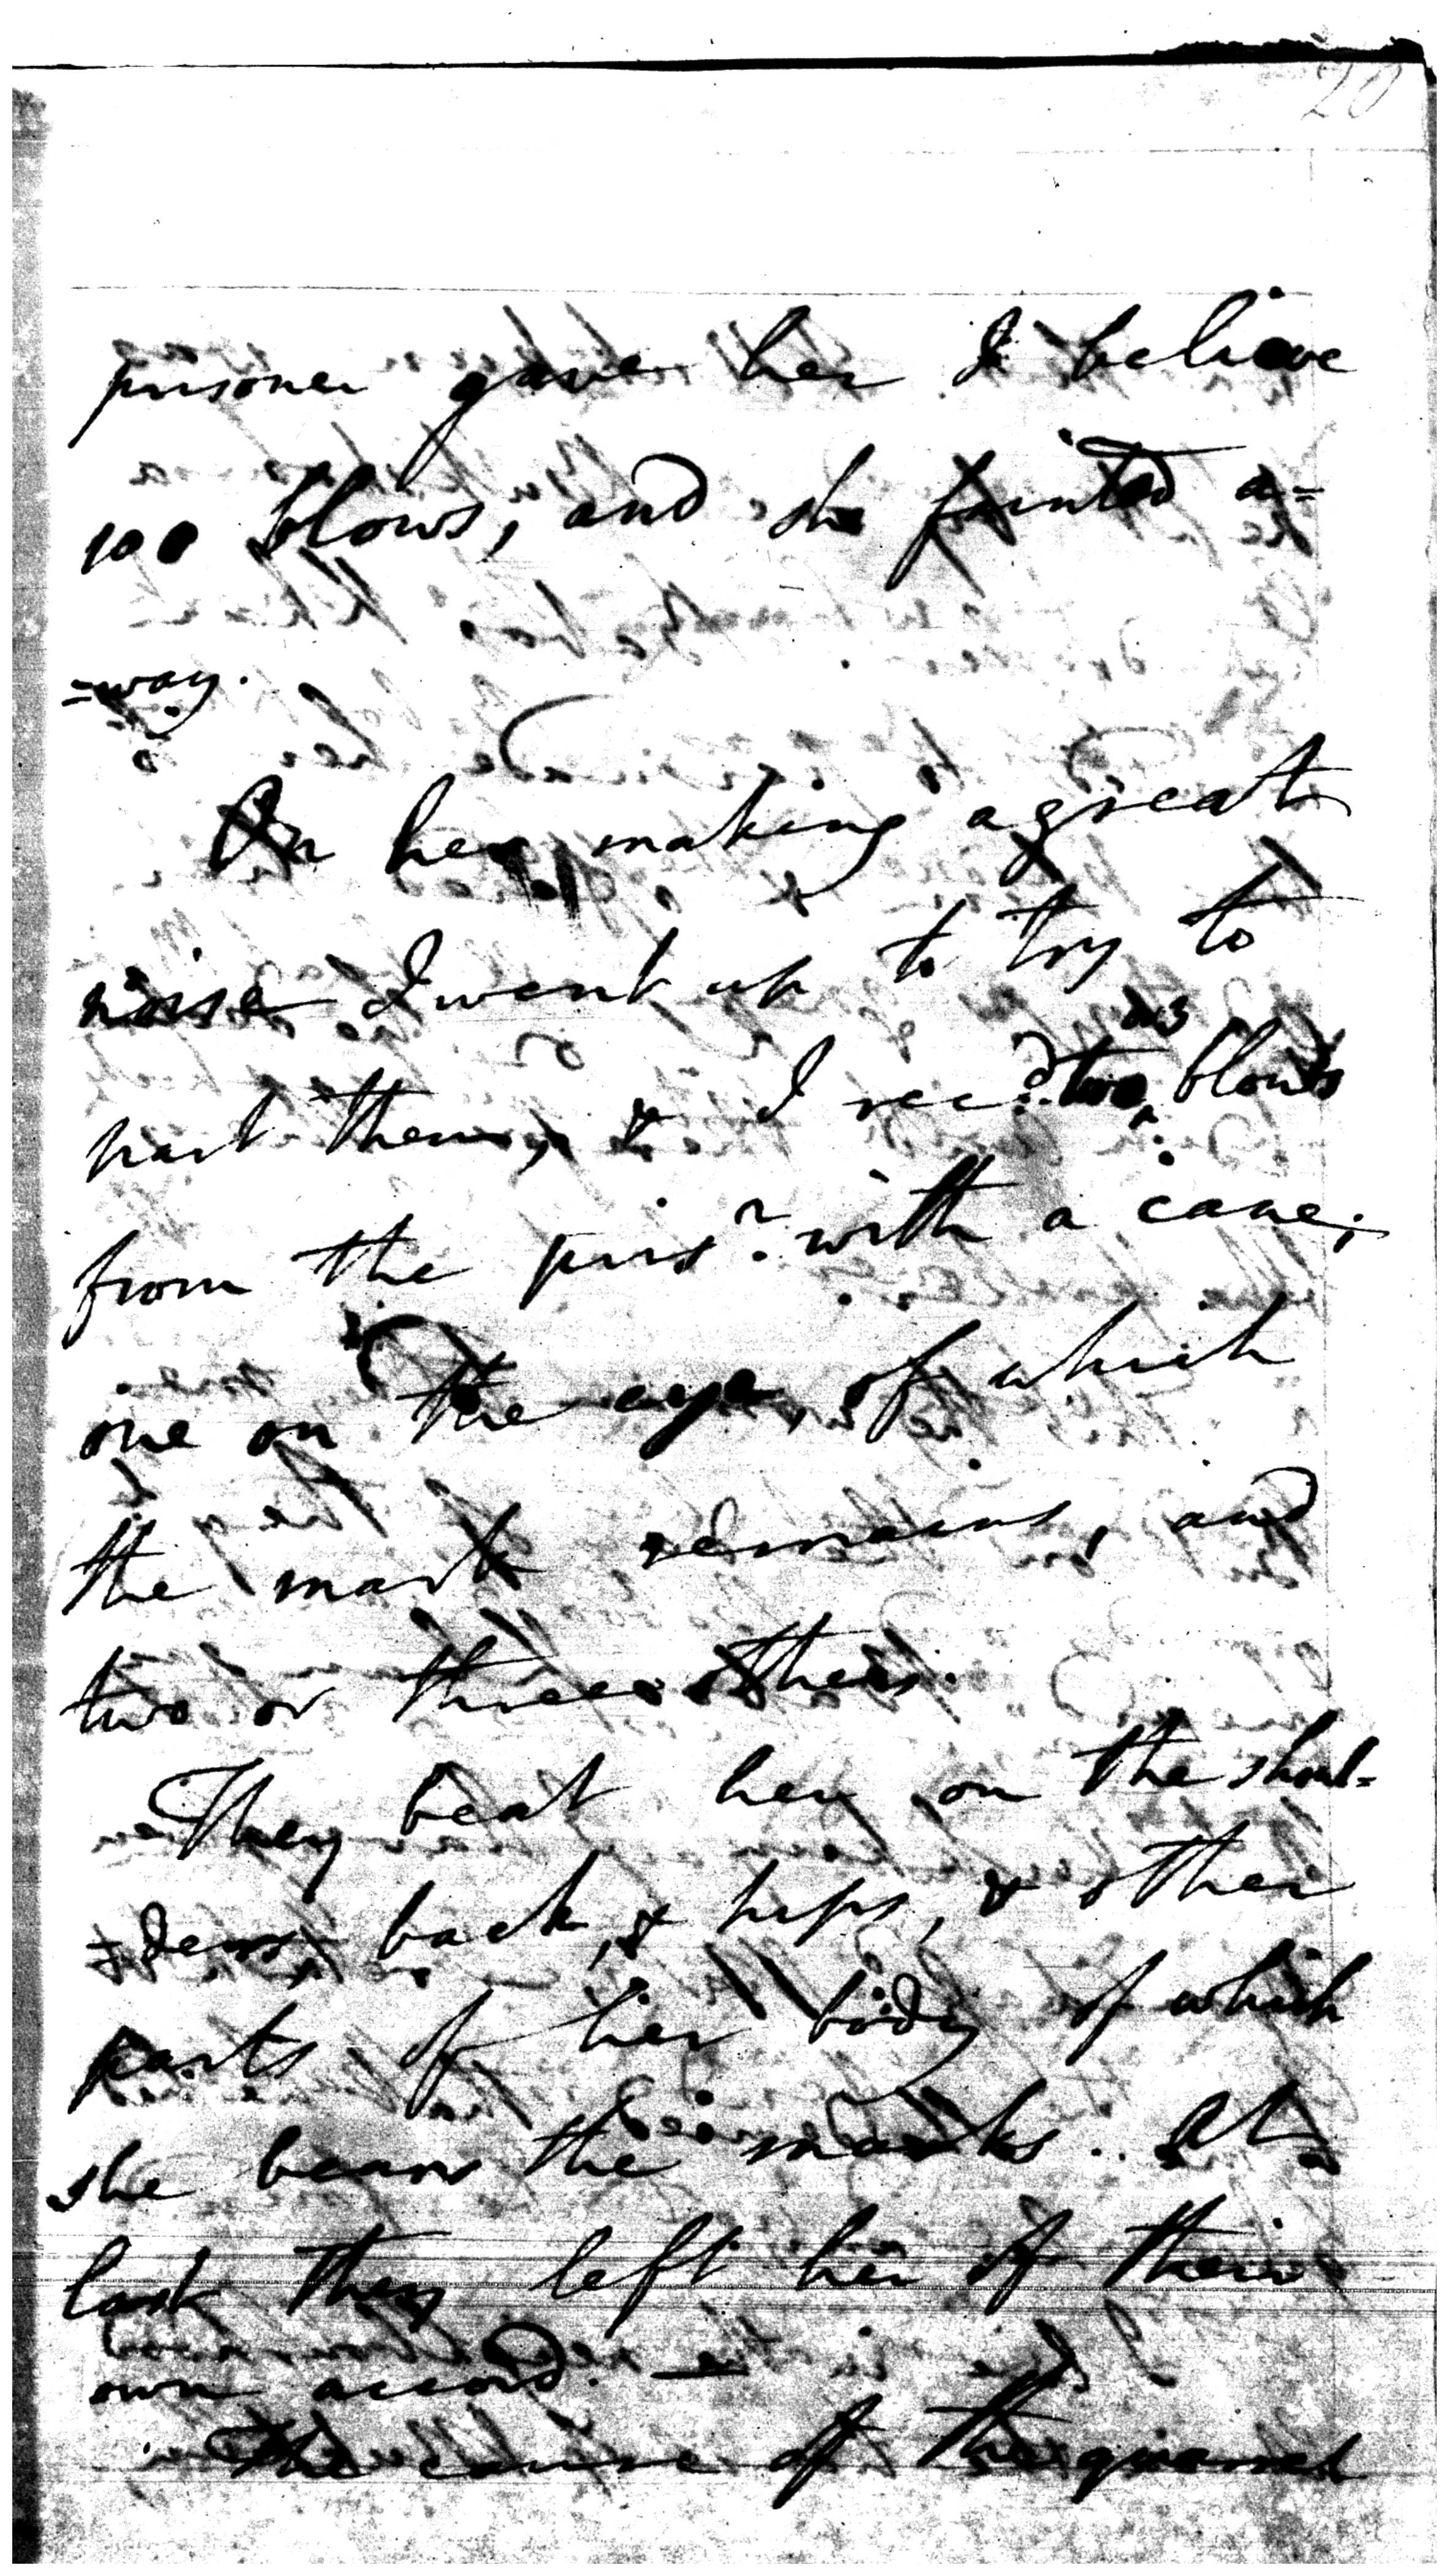 20
prisoner gave her I believe
100 blows, and she fainted a=
=way.
On her making a great
noise I went up to try to
part them, & I recd. two blows
from the prisr. with a cane;
one on the eye, of which
the mark remains, and
two or three others.
They beat her on the shoul-
=ders back, & hips, & other
parts of her body of which
she bears the marks. At
last they left her of their
own accord. —
The cause of the quarrel